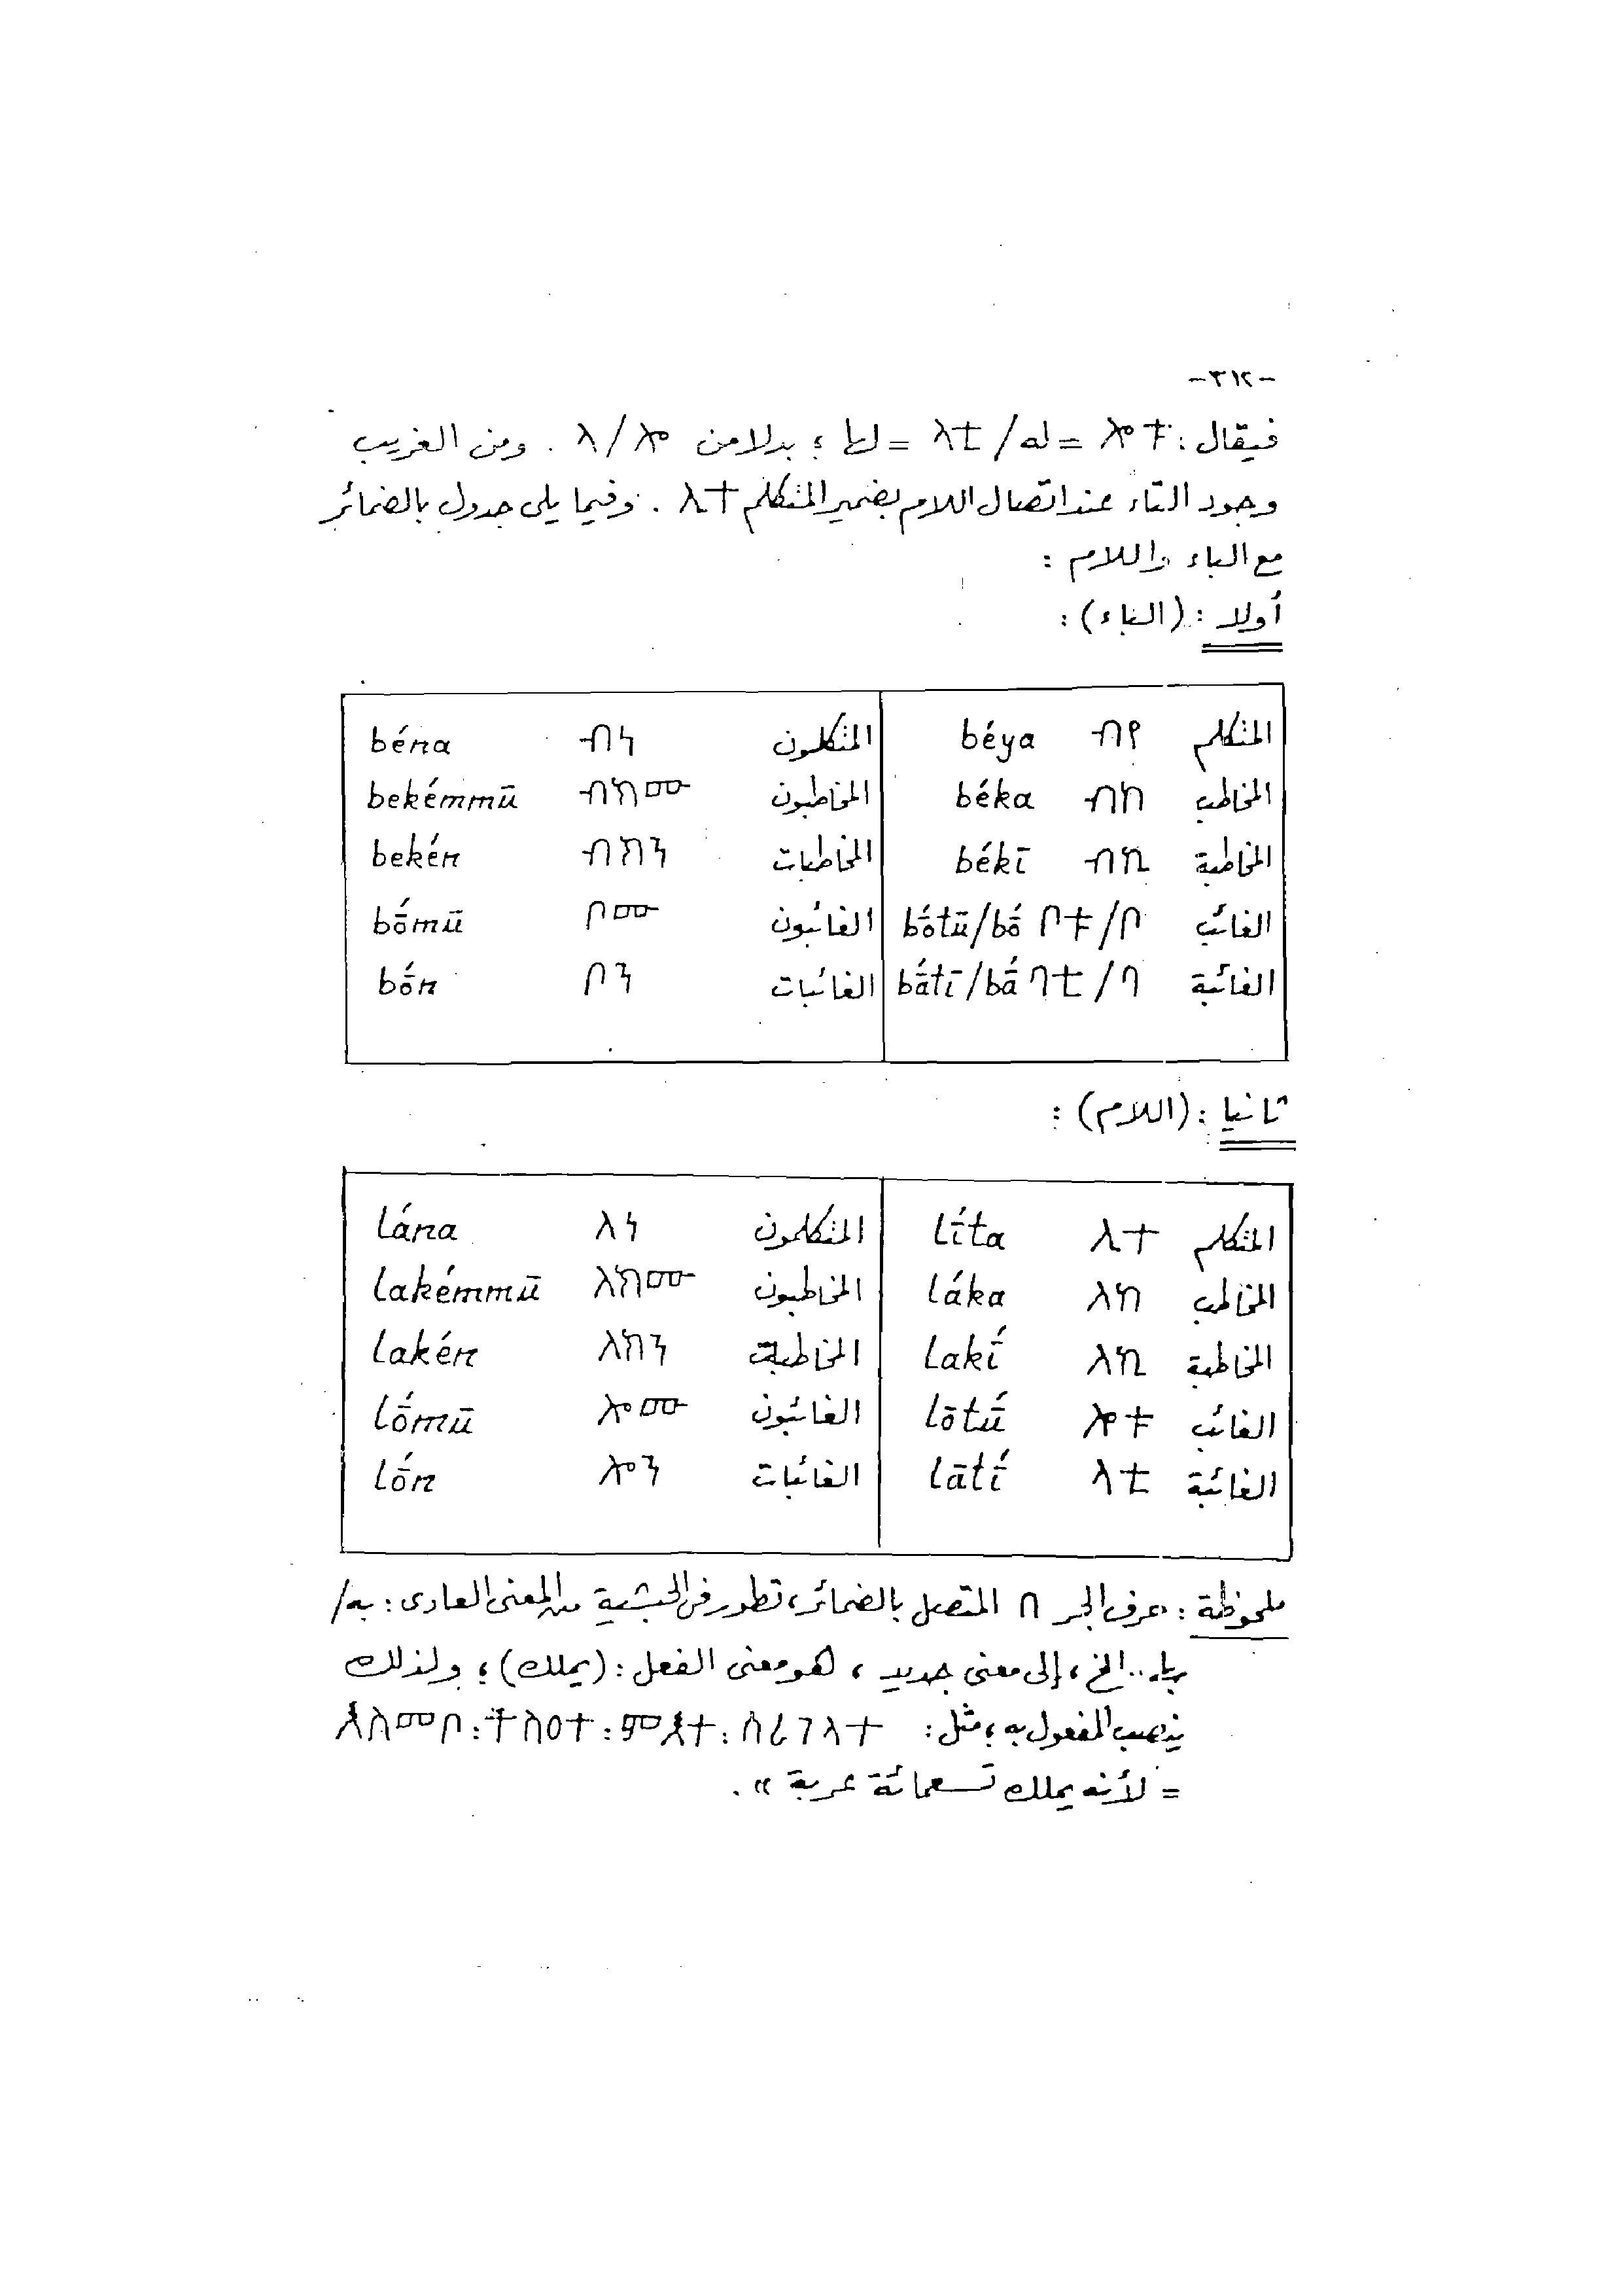 -٣١٢-
فيقال : ሎቱ = له / ላቲ = لها ؛ بدلا من ሎ / ላ . ومن الغريب
وجود التاء عند اتصال اللام بضمير المتكلم ሊተ . وفيما يلى جدول بالضمائر
مع الباء واللام :
أولا : (الباء) :
المتكلم ብየ béya المتكلمون ብነ béna
المخاطب ብከ béka المخاطبون ብክሙ bekémmū
المخاطبة ብኪ békī المخاطبات ብክን bekén
الغائب ቦ/ቦቱ bṓtū/bṓ الغائبون ቦሙ bṓmū
الغائبة ባ/ባቲ bā́tī/bā́ الغائبات ቦን bṓn
ثانيا : (اللام) :
المتكلم ሊተ lī́ta المتكلمون ለነ lána
المخاطب ለከ láka المخاطبون ለክሙ lakémmū
المخاطبة ለኪ lakī́ المخاطبات ለክን lakén
الغائب ሎቱ lōtū́ الغائبون ሎሙ lṓmū
الغائبة ላቲ lātī́ الغائبات ሎን lṓn
ملحوظة : حرف الجر በ المتصل بالضمائر، تطور فى الحبشية من المعنى العادى : به/
بها.. الخ ، إلى معنى جديد ، هو معنى الفعل : (يملك) ؛ ولذلك
ينصب المفعول به ؛ مثل : እስመቦ:ትስዐተ:ምእተ:ሰረገላተ
= لأنه يملك تسعمائة عربة » .